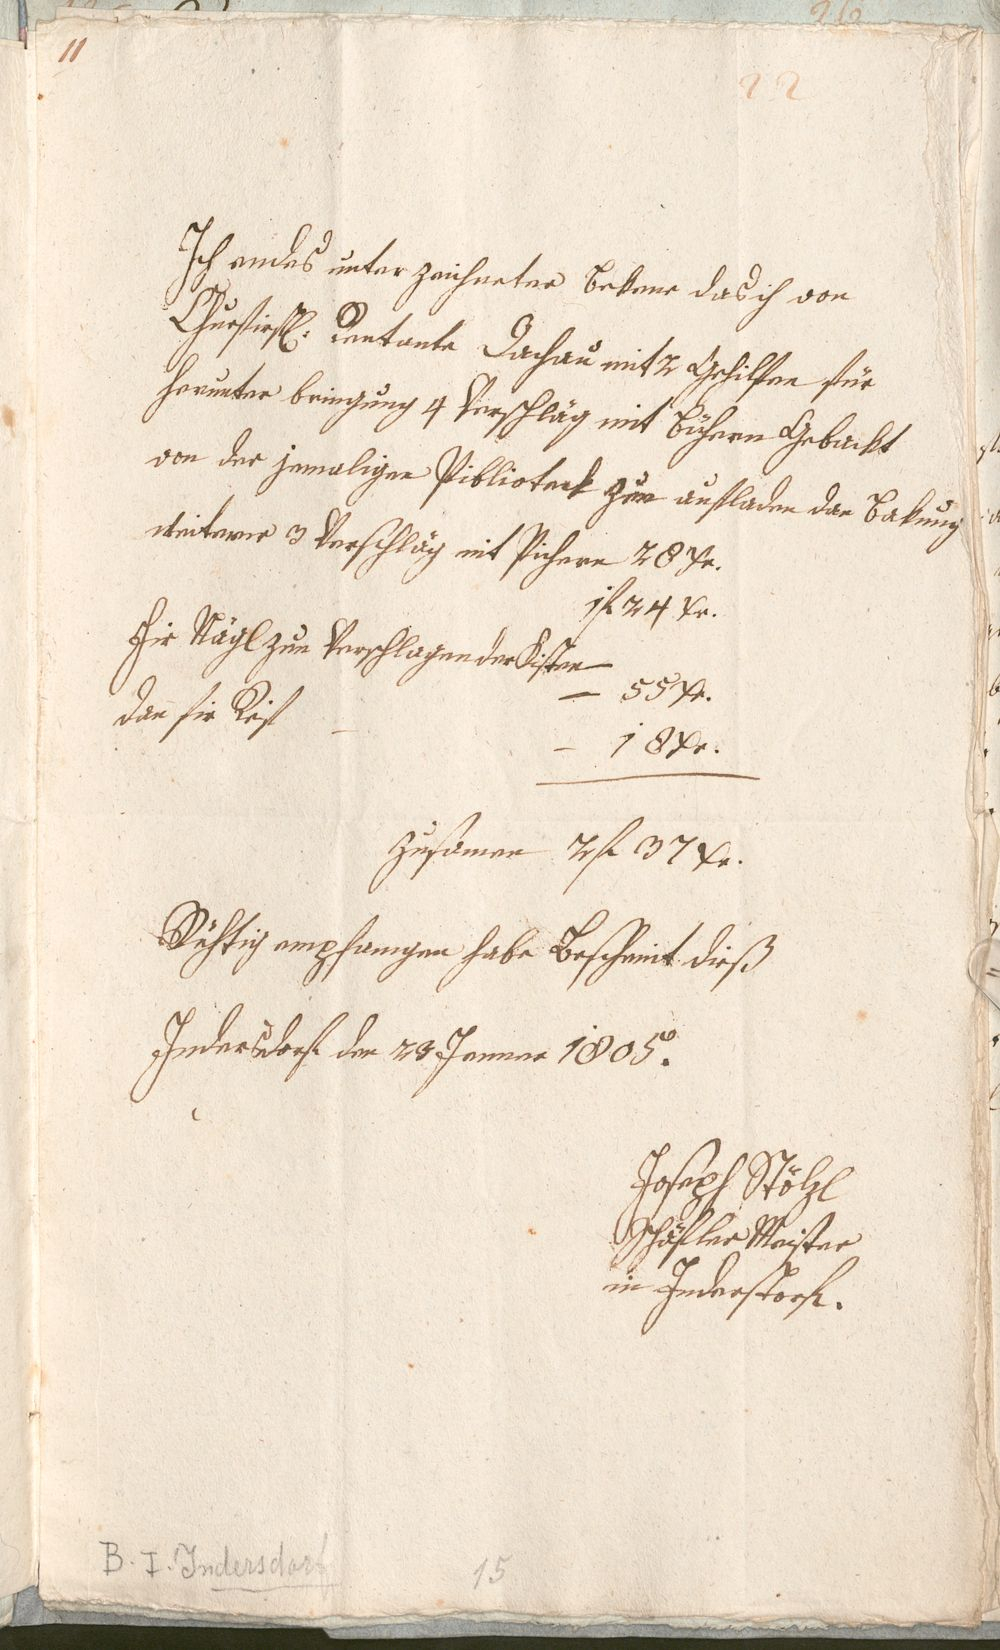 11
22
Ich endes unter zeichneter Bekene das ich von
Churfirstl: Rentante Dachau mit 2 Gehilfen für
herunter bringung 4 Verschläg mit Bühern Gebackt
von der jemaligen Piblioteck zum aufladen dan Bakung
weiterer 3 Verschläg mit Pichern 28 xr.
1 f 24 xr.
Fir Nägl zum Verschlagen der Kisten
— 55 xr.
dan fir Reif — — 18 xr.
Zusamen 2 f 37 xr.
Rihtig empfangen habe Bescheint dieß
Indersdorf den 23 Jenner 1805.
Joseph Stölzl
Schäfler Meister
in Inderstorf.
B. I. Indersdorf
15